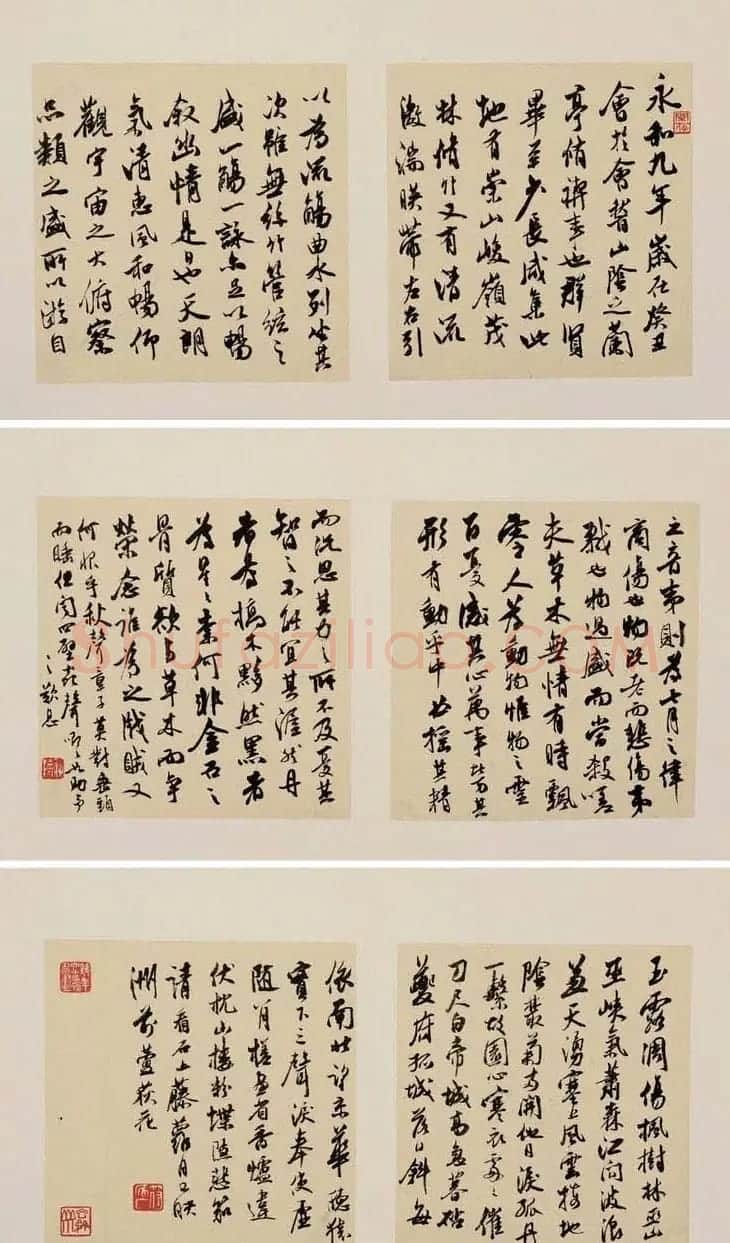 永和九年歲在癸丑
會於會稽山陰之蘭
亭脩禊事也群賢
畢至少長咸集此
地有崇山峻嶺茂
林脩竹又有清流
激湍暎帶左右引
以為流觴曲水列坐其
次雖無絲竹管絃之
盛一觴一詠亦足以暢
敘幽情是日也天朗
氣清惠風和暢仰
觀宇宙之大俯察
品類之盛所以遊目
之音夷則為七月之律
商傷也物既老而悲傷夷
戮也物過盛而當殺嗟
夫草木無情有時飄
零人為動物惟物之靈
百憂感其心萬事勞其
形有動乎中必搖其精
而況思其力之所不及憂其
智之不能宜其渥然丹
者為槁木黟然黑者
為星星奈何非金石之
骨質欲與草木而爭
榮念誰為之戕賊又
何恨乎秋聲童子莫對垂頭
而睡但聞四壁蟲聲唧唧如助予
之歎息
玉露凋傷楓樹林巫山
巫峽氣蕭森江間波浪
兼天湧塞上風雲接地
陰叢菊兩開他日淚孤舟
一繫故園心寒衣處處催
刀尺白帝城高急暮砧
夔府孤城落日斜每
依南斗望京華聽猿
實下三聲淚奉使虛
隨八月槎畫省香爐違
伏枕山樓粉堞隱悲笳
請看石上藤蘿月已映
洲前蘆荻花
Shufaziliao.COM